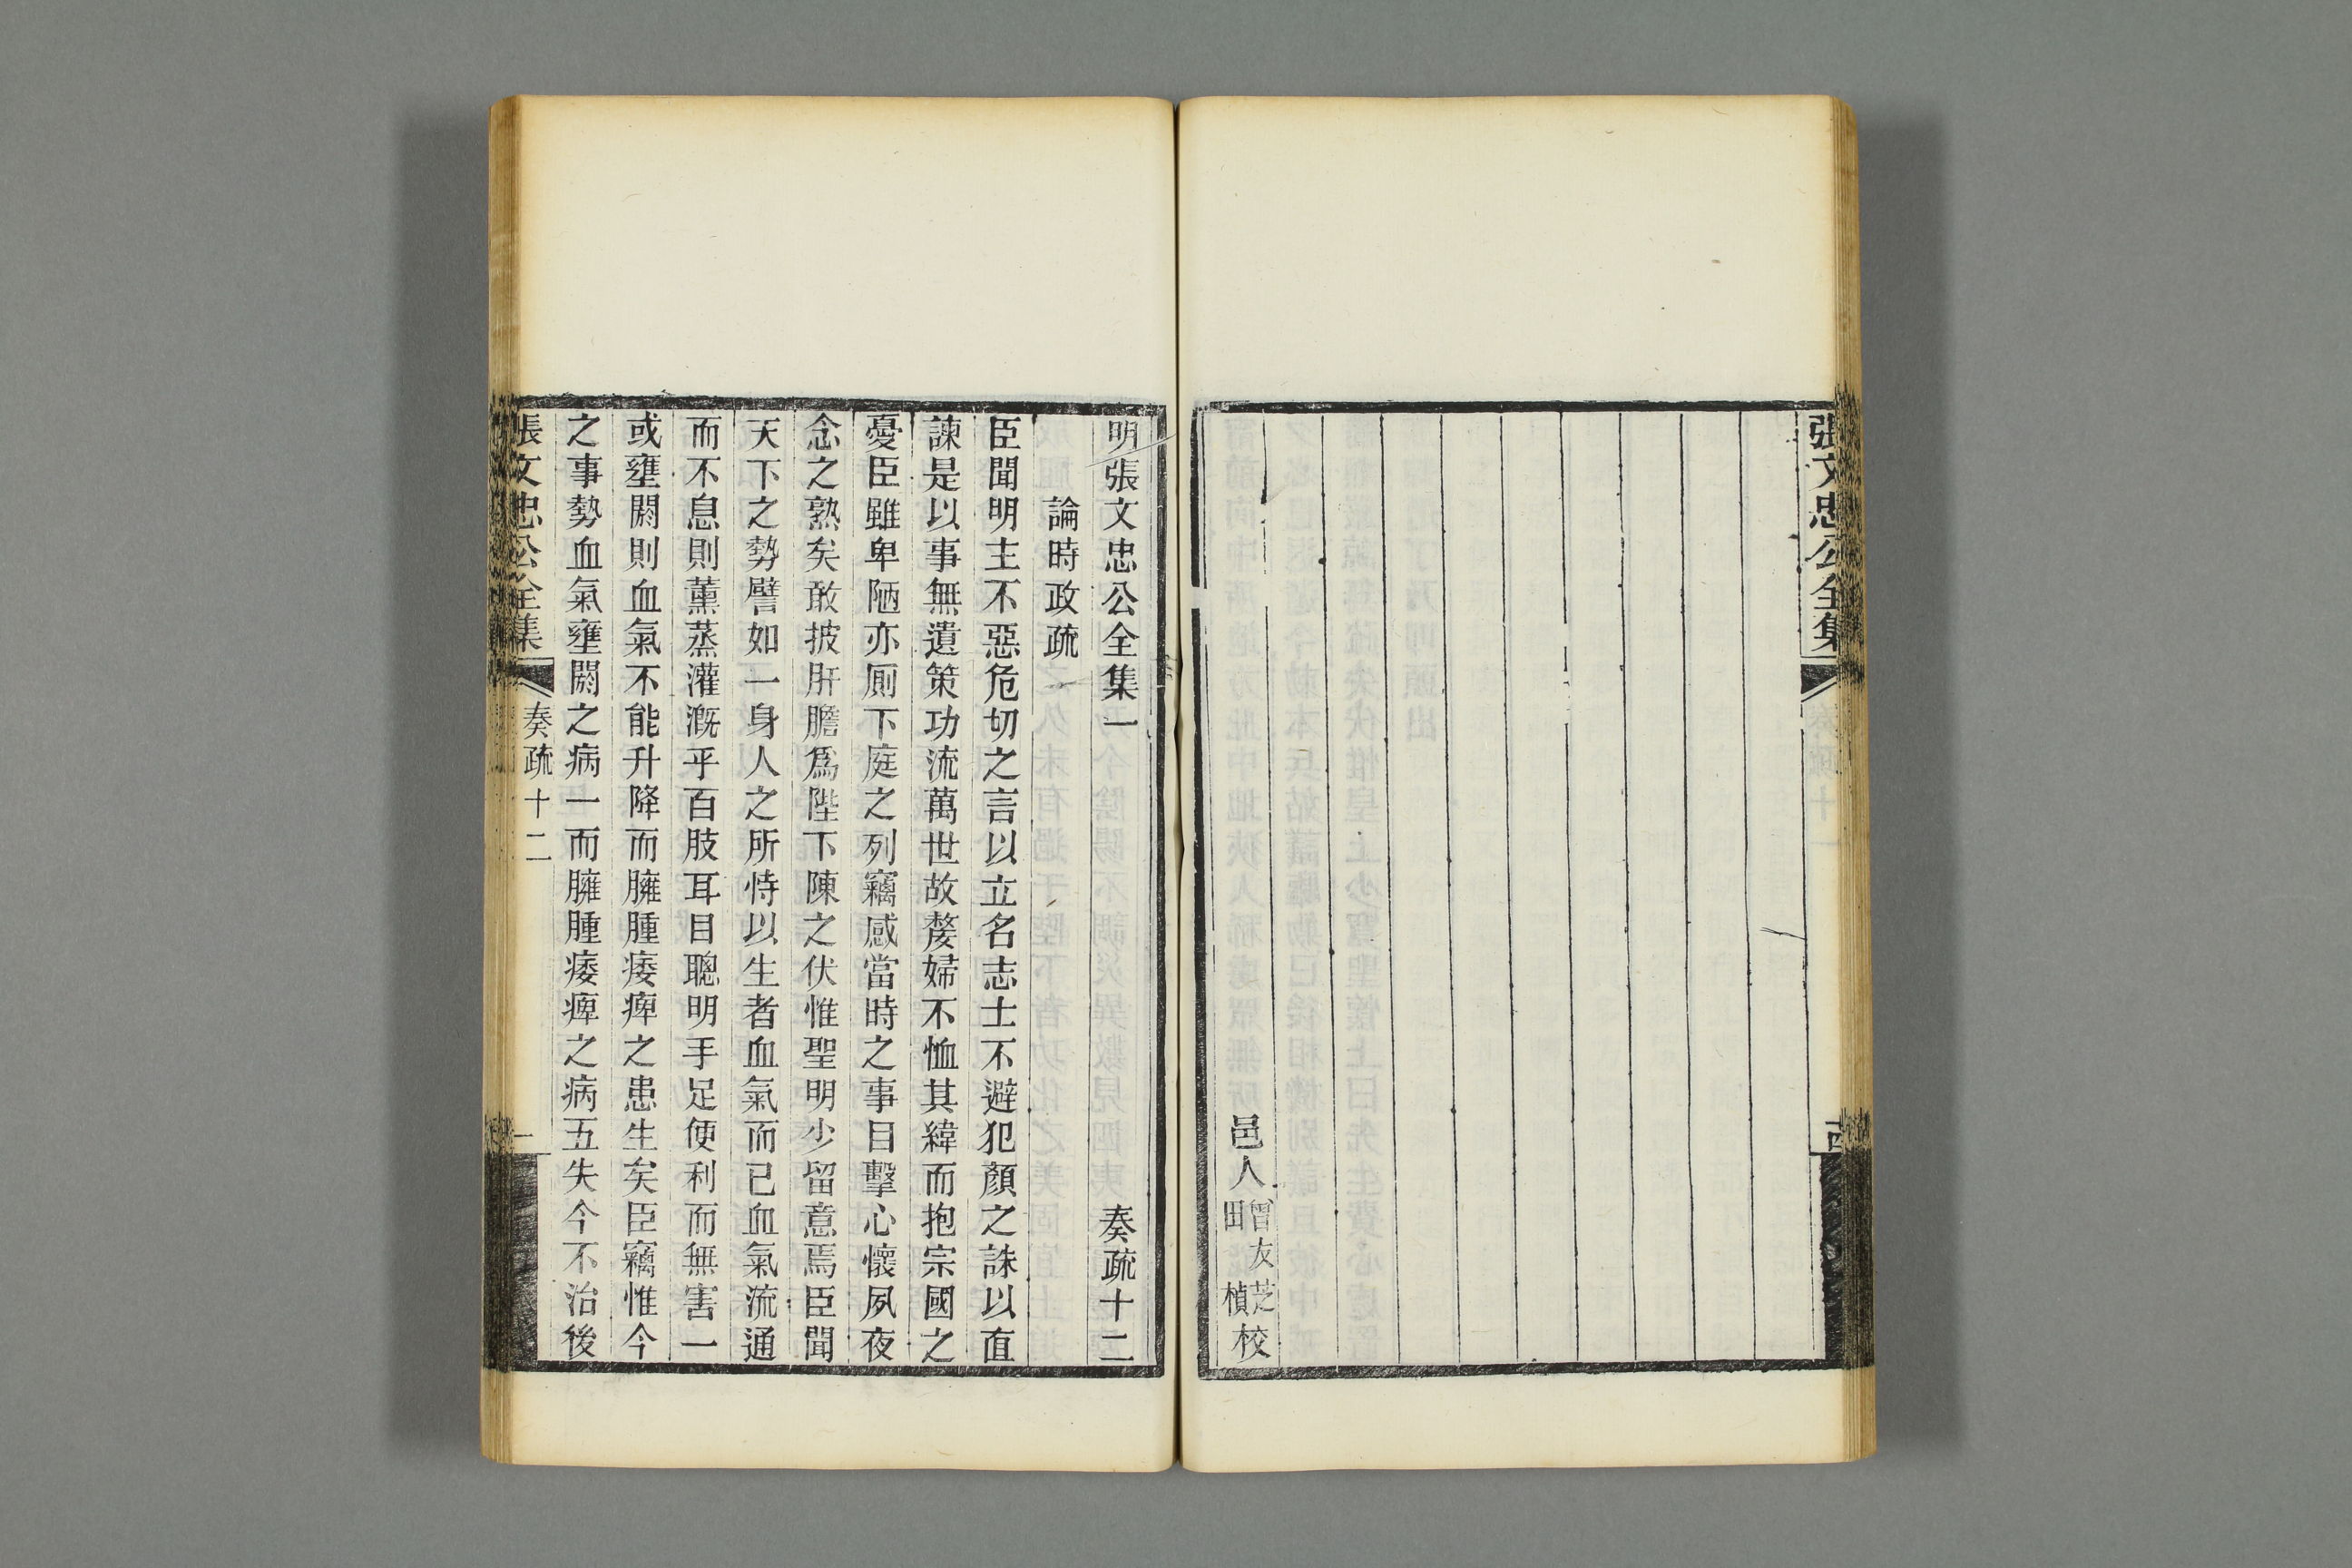 張文忠公全集
邑人曾友芝田楨校
明張文忠公全集一 奏疏十二
論時政疏
臣聞明主不惡危切之言以立名志士不避犯顏之誅以直
諫是以事無遺策功流萬世故嫠婦不恤其緯而抱宗國之
憂臣雖卑陋亦厠下庭之列竊感當時之事目擊心懷夙夜
念之熟矣敢披肝膽爲陛下陳之伏惟聖明少留意焉臣聞
天下之勢譬如一身人之所恃以生者血氣而已血氣流通
而不息則薰蒸灌漑乎百肢耳目聰明手足便利而無害一
或壅閼則血氣不能升降而臃腫痿痺之患生矣臣竊惟今
之事勢血氣壅閼之病一而臃腫痿痺之病五失今不治後
張文忠公全集 奏疏十二 一